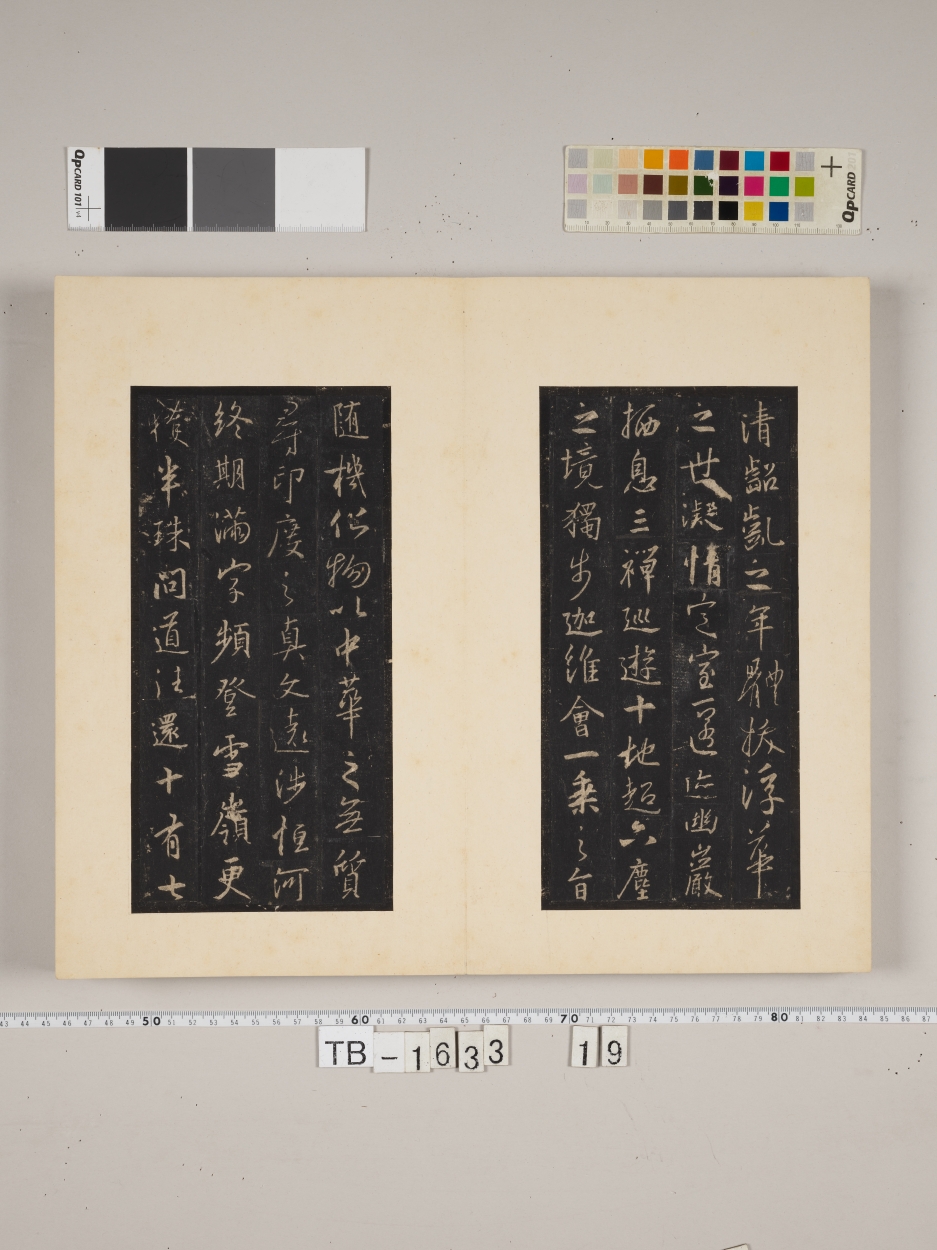 QPCARD 101 v4
QPCARD 201
清齠齓之年體拔浮華
之世凝情定室匿迹幽巖
栖息三禪巡遊十地超六塵
之境獨步迦維會一乘之旨
随機化物以中華之無質
尋印度之真文遠涉恒河
終期滿字頻登雪嶺更
獲半珠問道往還十有七
43 44 45 46 47 48 49 50 51 52 53 54 55 56 57 58 59 60 61 62 63 64 65 66 67 68 69 70 71 72 73 74 75 76 77 78 79 80 81 82 83 84 85 86 87
TB-1633 19